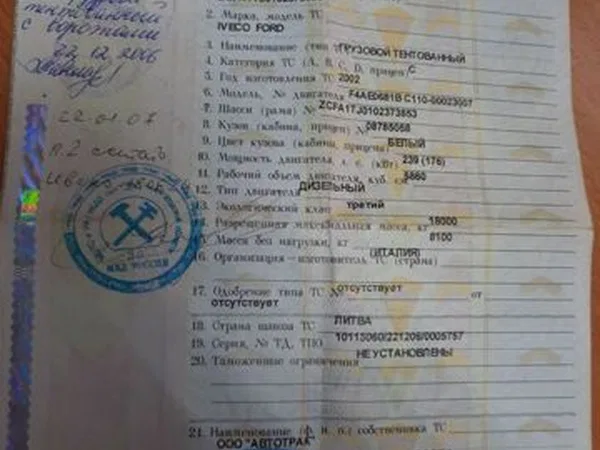 тентованный
с воротами
22.12.2006
22.01.07
п.2 считать
2. Марка, модель ТС
IVECO FORD
3. Наименование (тип ТС) ГРУЗОВОЙ ТЕНТОВАННЫЙ
4. Категория ТС (А, В, С, D, прицеп) С
5. Год изготовления ТС 2002
6. Модель, № двигателя F4AE0681B C110-00023007
7. Шасси (рама) № ZCFA1TJ0102373853
8. Кузов (кабина, прицеп) № 08785058
9. Цвет кузова (кабины, прицепа) БЕЛЫЙ
10. Мощность двигателя, л. с. (кВт) 239 (176)
11. Рабочий объем двигателя, куб. см 5880
12. Тип двигателя ДИЗЕЛЬНЫЙ
13. Экологический класс третий
14. Разрешенная максимальная масса, кг 18000
15. Масса без нагрузки, кг 8100
16. Организация - изготовитель ТС (страна) (ИТАЛИЯ)
17. Одобрение типа ТС № отсутствует от
отсутствует
18. Страна вывоза ТС ЛИТВА
19. Серия, № ТД, ТПО 10115060/221206/0005757
20. Таможенные ограничения НЕ УСТАНОВЛЕНЫ
21. Наименование (ф. и. о.) собственника ТС
ООО "АВТОТРАК"
МВД РОССИИ